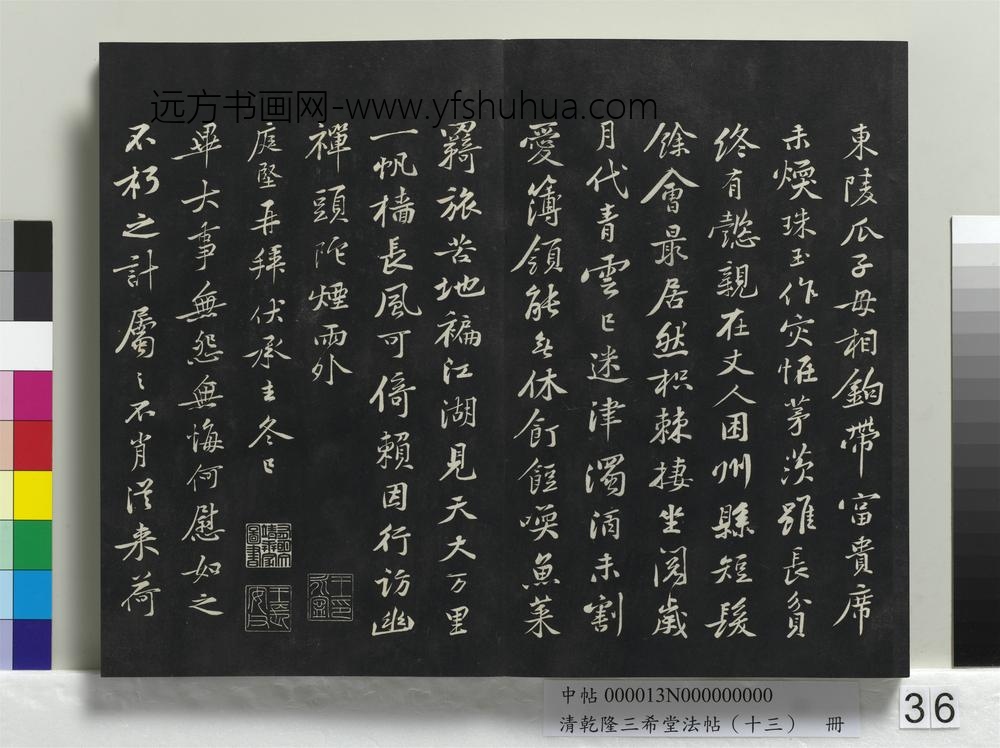 远方书画网-www.yfshuhua.com
東陵瓜子母相鉤帶富貴席
未煖珠玉作灾怪茅茨雖長貧
終有懿親在丈人困州縣短髮
餘會最居然枳棘棲坐閱歲
月代青雲已迷津濁酒未割
愛簿領能無休飣餖喚魚菜
羇旅苦地褊江湖見天大万里
一帆檣長風可倚賴因行訪幽
禪頭陀煙雨外
庭堅再拜伏承主冬已
畢大事無怨無悔何慰如之
不朽之計屬之不肖從來荷
中帖 000013N000000000
清乾隆三希堂法帖（十三） 冊
36